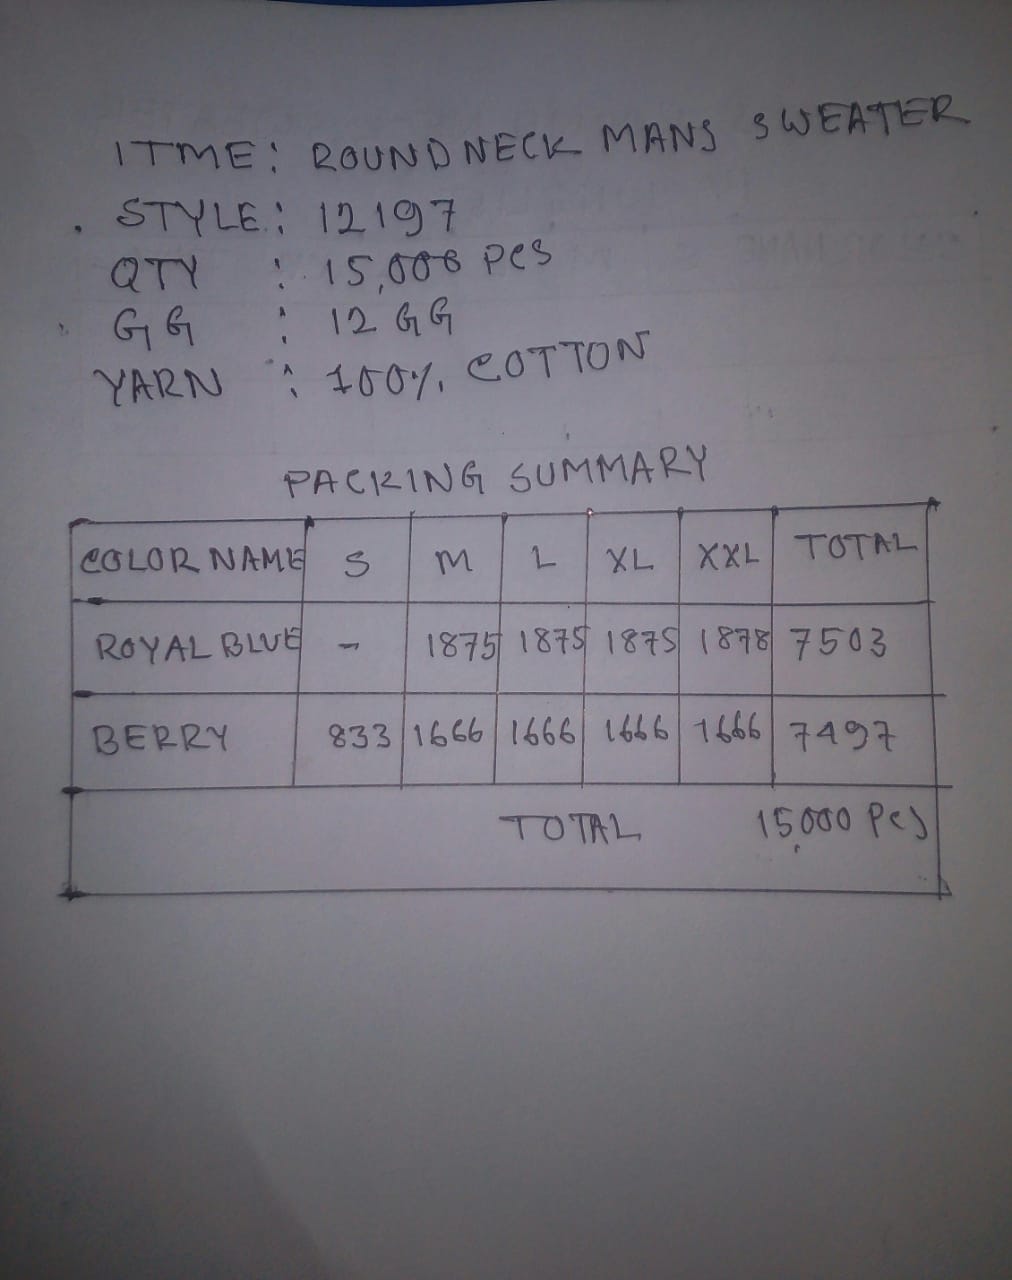 ITME: ROUND NECK MANS SWEATER
STYLE: 12197
QTY : 15,000 Pcs
GG : 12 GG
YARN : 100% COTTON
PACKING SUMMARY
COLOR NAME S M L XL XXL TOTAL
ROYAL BLUE - 1875 1875 1875 1878 7503
BERRY 833 1666 1666 1666 1666 7497
TOTAL 15,000 Pcs